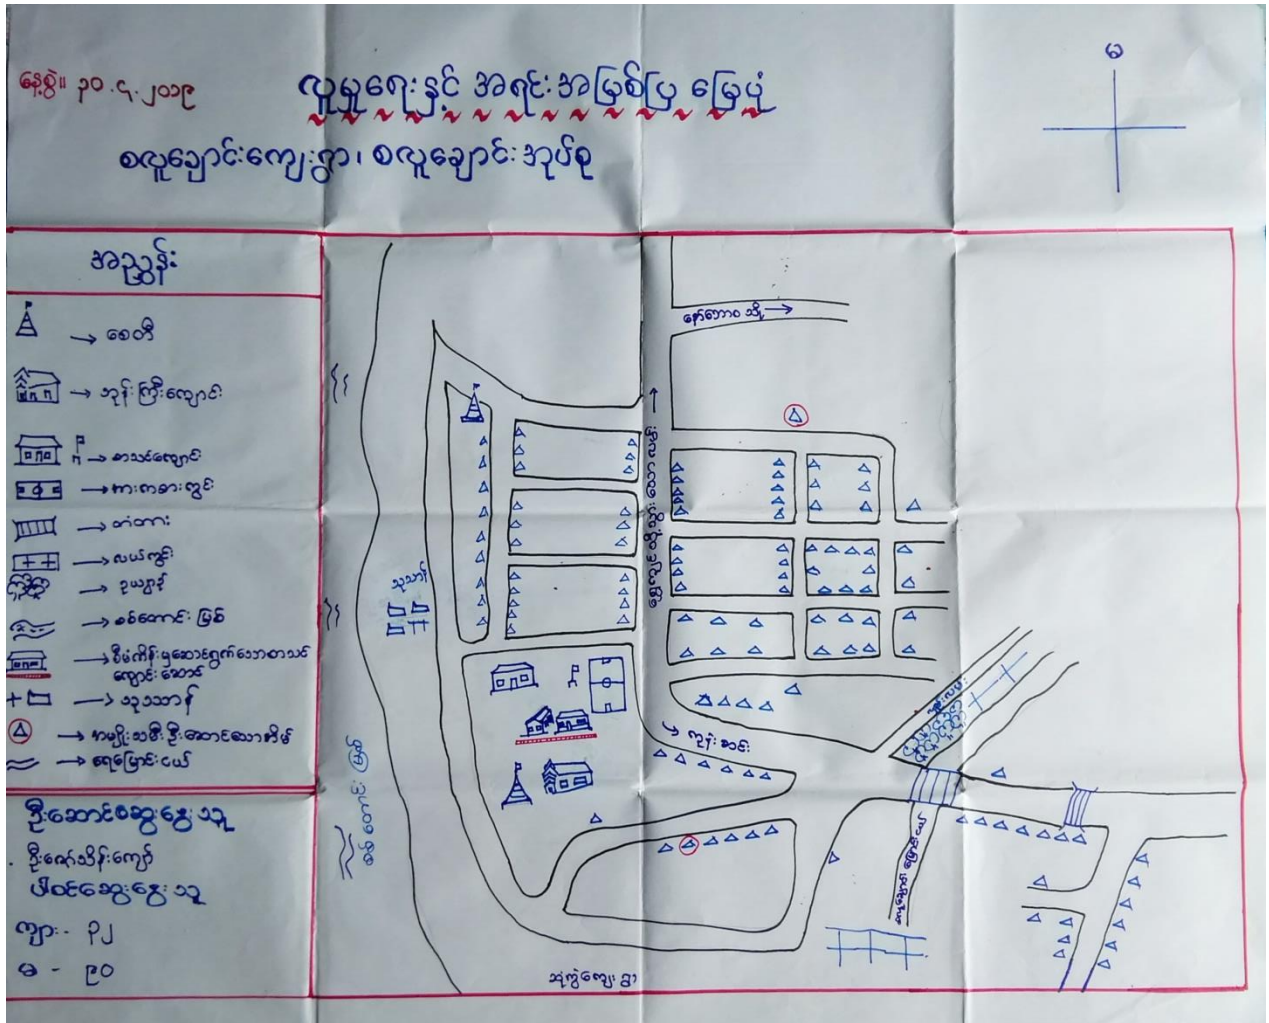 နေ့စွဲ။ ၃၀.၄.၂၀၁၉
လူမှုရေးနှင့် အရင်းအမြစ်ပြ မြေပုံ
စလူချောင်းကျေးရွာ၊ စလူချောင်းအုပ်စု
မ
အညွှန်း
→ စေတီ
→ ဘုန်းကြီးကျောင်း
→ စာသင်ကျောင်း
→ အားကစားကွင်း
→ တံတား
→ လယ်ကွင်း
→ ဥယျာဉ်
→ စစ်တောင်းမြစ်
→ စီမံကိန်းမှဆောင်ရွက်သောစာသင်
ကျောင်းဆောင်
→ သုဿာန်
→ အမျိုးသမီးဦးဆောင်သောအိမ်
→ ရေမြောင်းငယ်
ဦးဆောင်ဆွေးနွေးသူ
ဦးဇော်သိန်းကျော်
ပါဝင်ဆွေးနွေးသူ
ကျား - ၃၂
မ - ၉၀
သို့ →
သုသာန်
→ ကုန်းဆင်း
စစ်တောင်းမြစ်
ကျေးရွာ